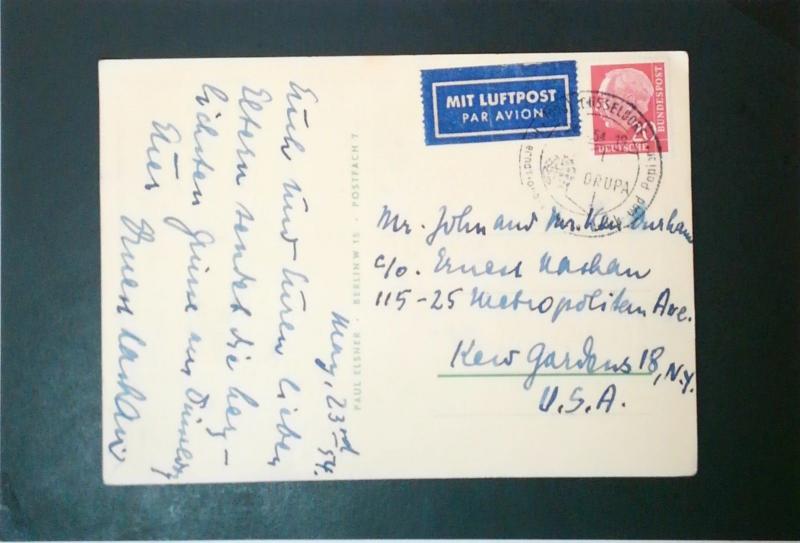 May, 23rd 54.
Euch und Euren lieben
Eltern sendet die herz-
lichsten Grüsse aus Düsseldorf
Euer Ernest
PAUL ELSNER · BERLIN W 15 · POSTFACH 7
MIT LUFTPOST
PAR AVION
DEUTSCHE
BUNDESPOST
20
DÜSSELDORF
54
DRUPA
und Papier
Mr. John and Mr. Ken Durham
c/o. Ernest
115-25 Metropolitan Ave.
Kew Gardens 18, N.Y.
U.S.A.